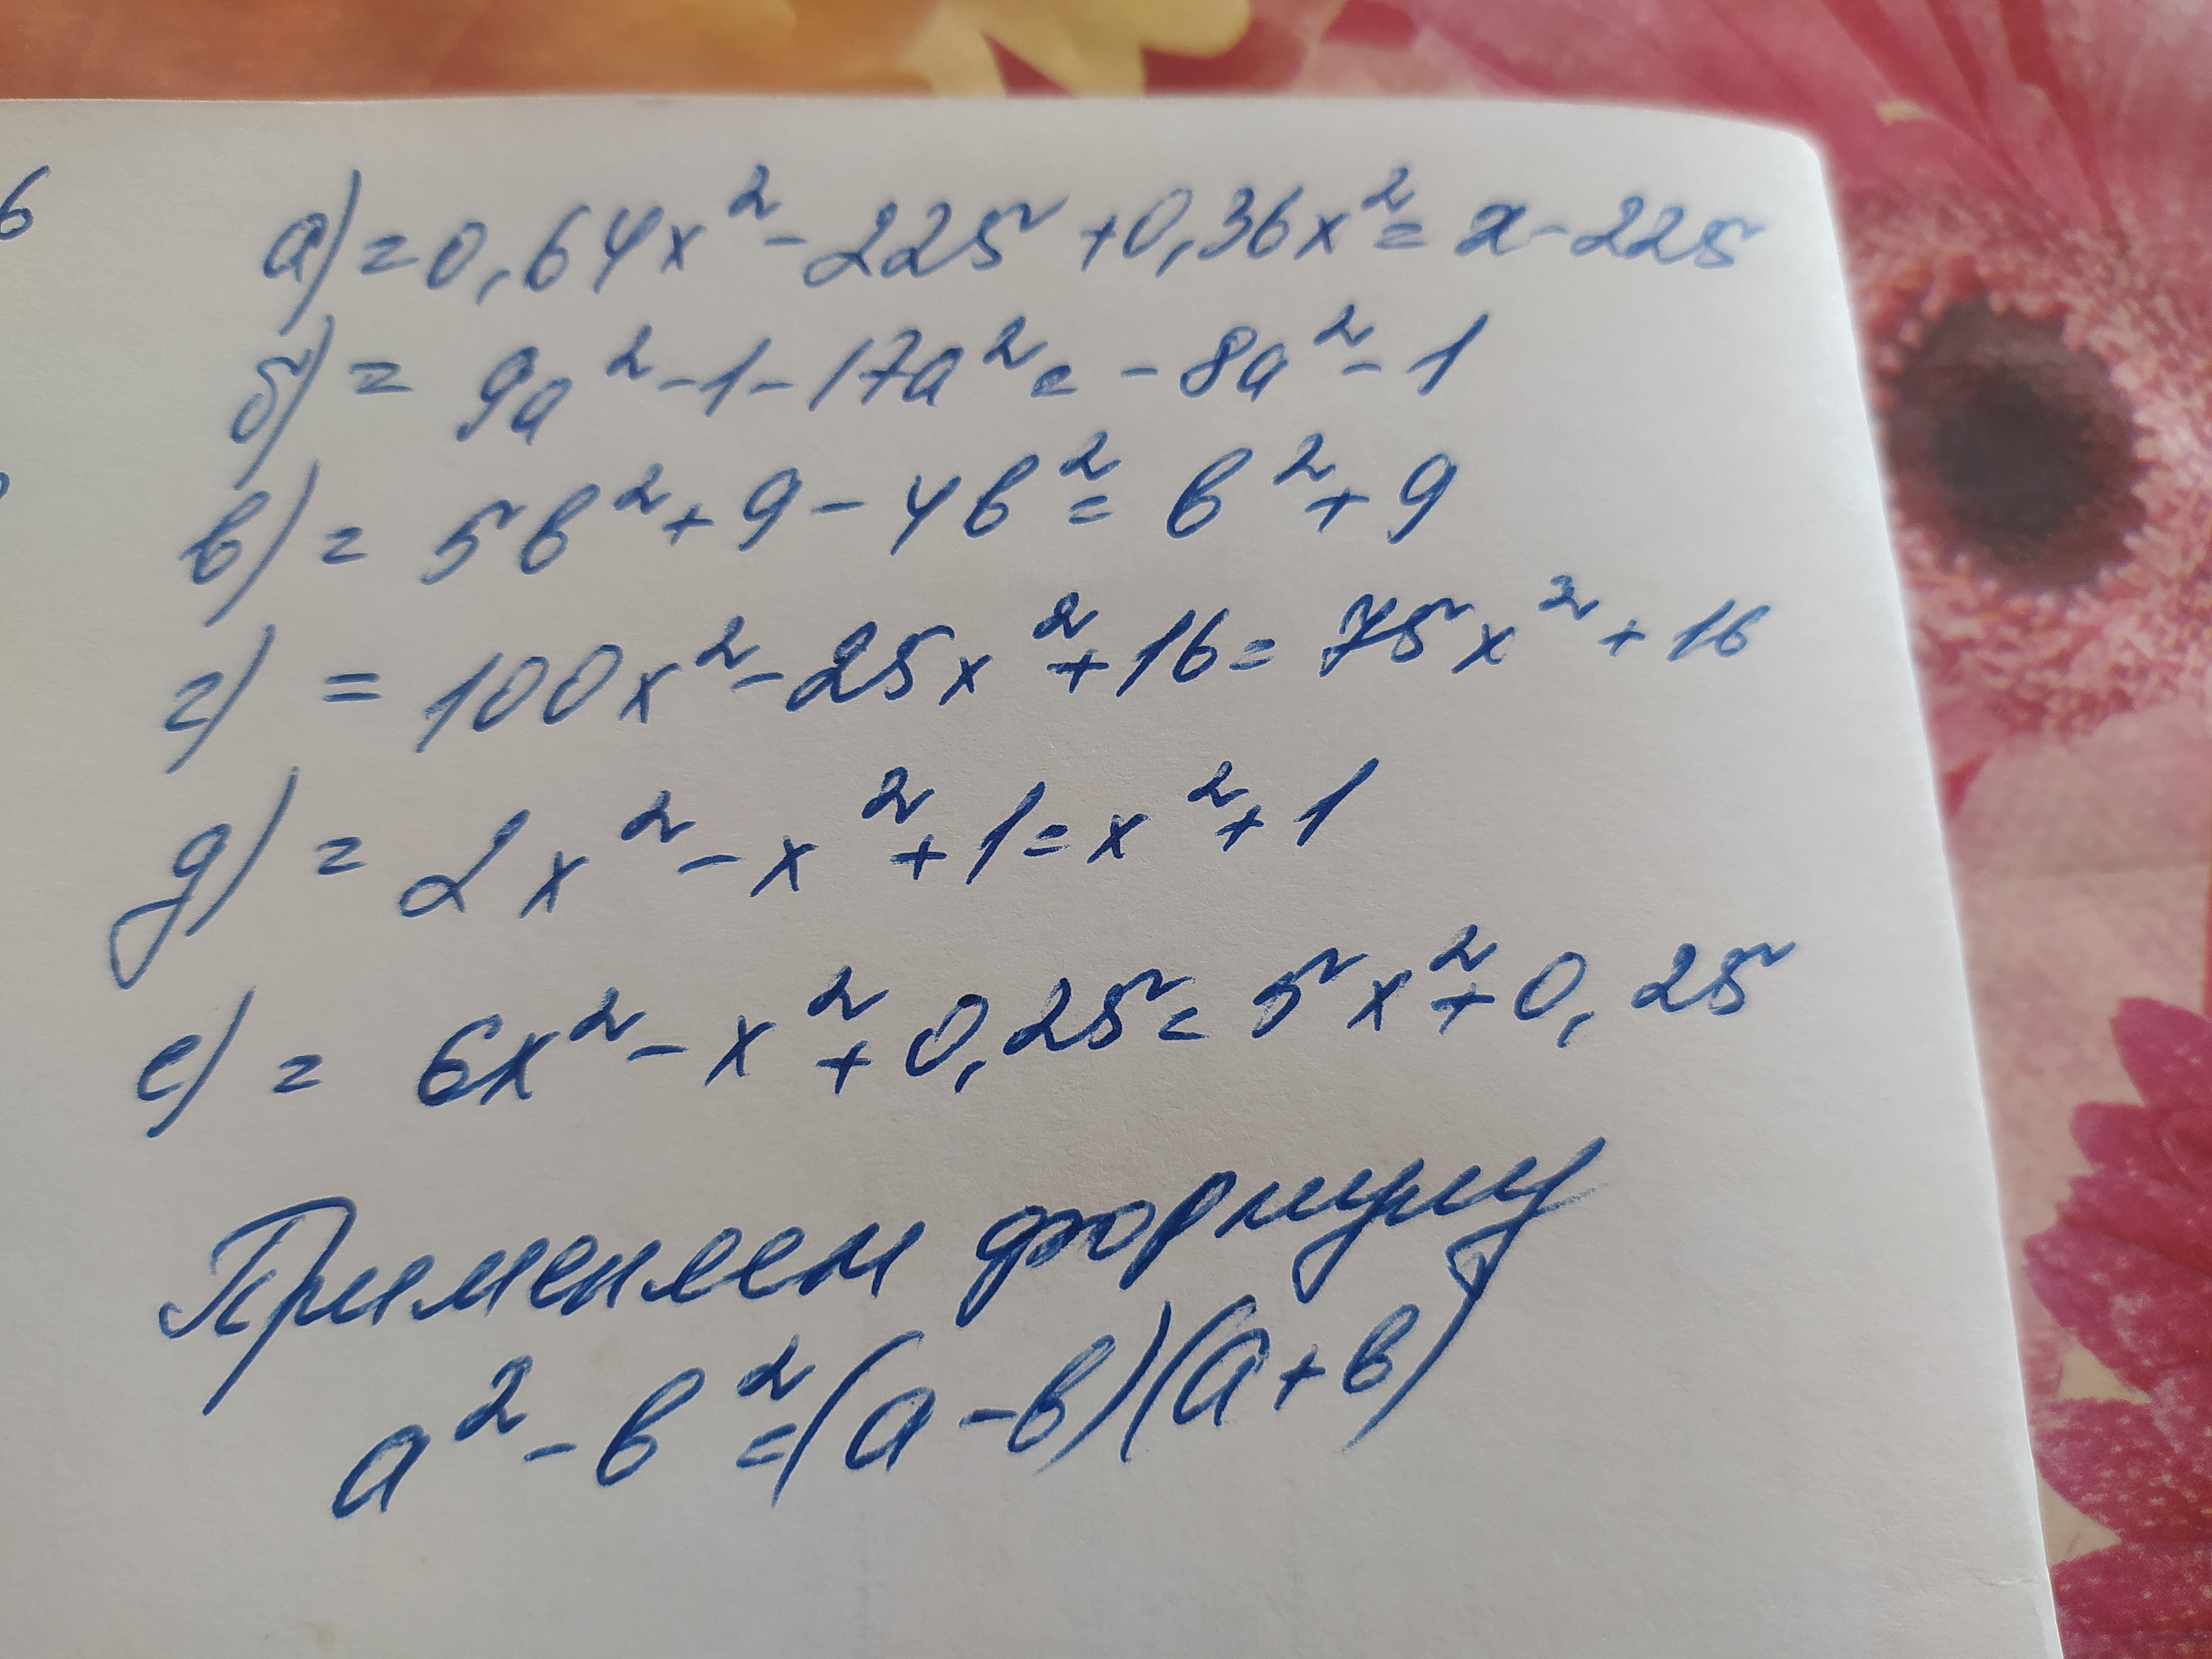 6
а) = 0,64x² - 225 + 0,36x² = x - 225
б) = 9a² - 1 - 17a² = - 8a² - 1
в) = 5b² + 9 - 4b² = b² + 9
г) = 100x² - 25x² + 16 = 75x² + 16
д) = 2x² - x² + 1 = x² + 1
е) = 6x² - x² + 0,25 = 5x² + 0,25
Применяем формулу
a² - b² = (a - b)(a + b)